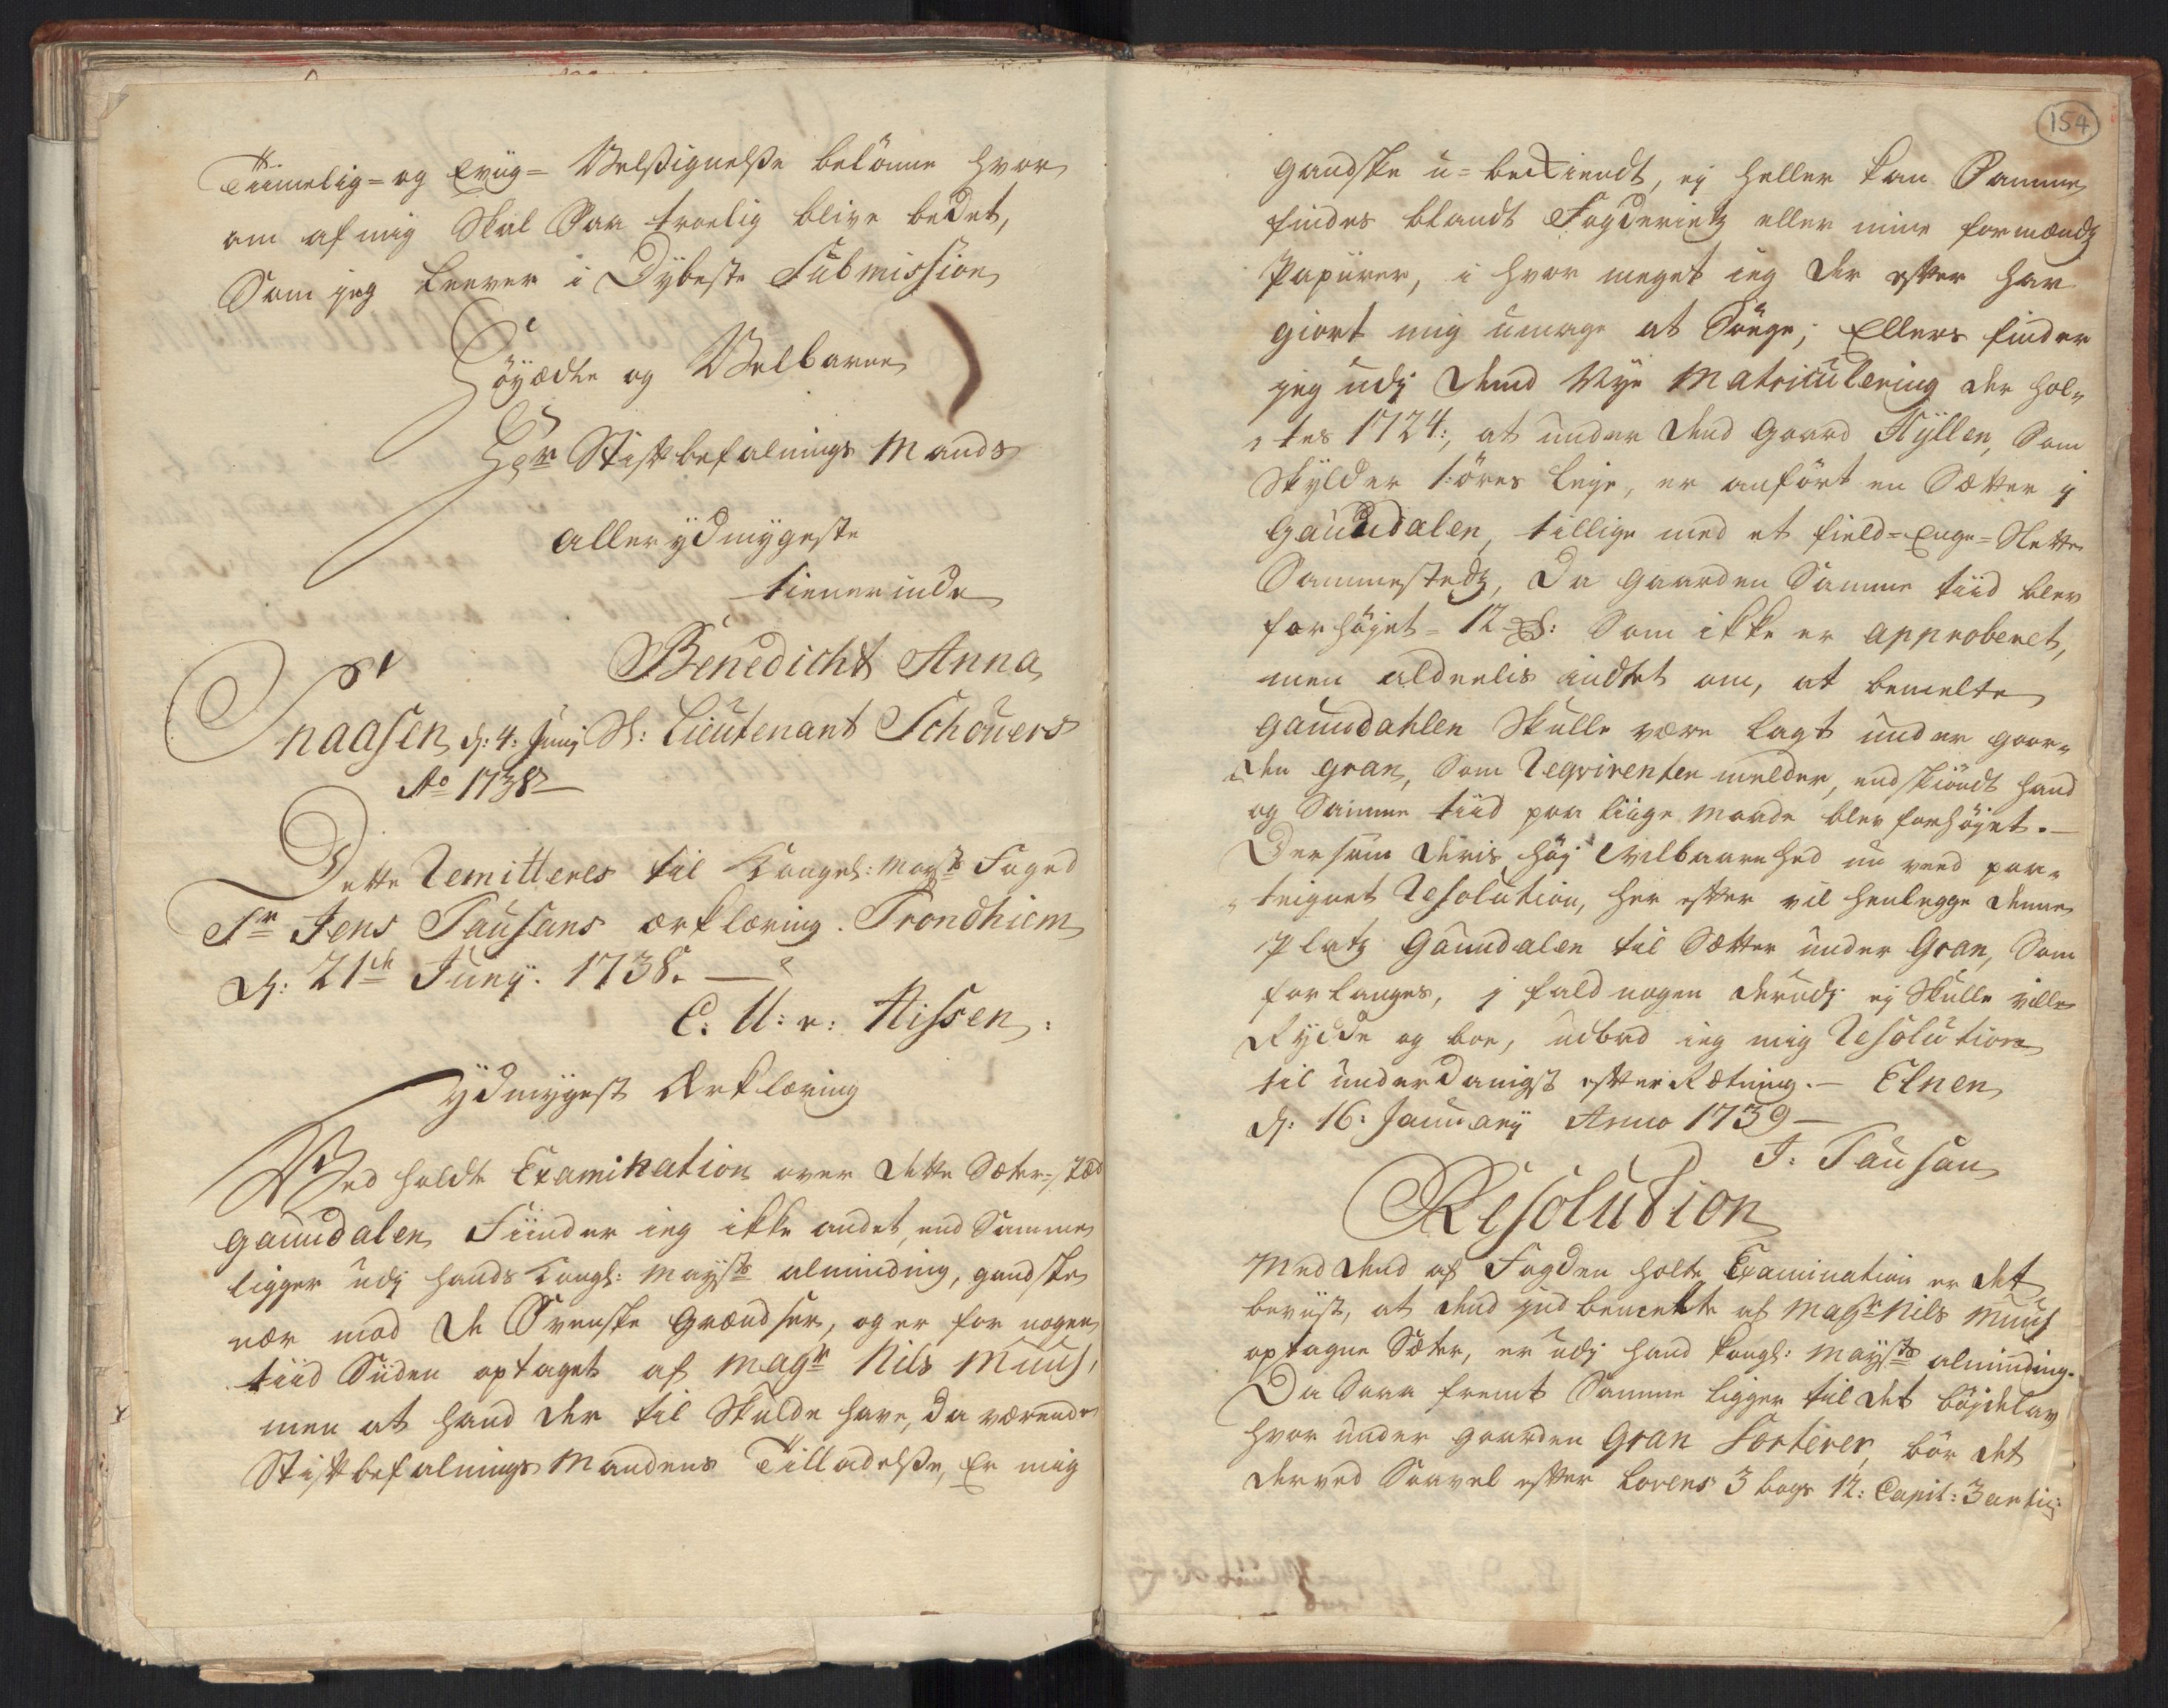 Tiimelig- og Evig- Velsignelse belönne hvor
om af mig Skal Saa troelig blive bedet,
Som jeg Leever i Dÿbeste Submission
Höÿædle og Velbaarne
Her Stiftbefalnings Mands
allerÿdmÿgeste
tienerinde
Benedicht Anna
Snaasen d: 4: Junij Sl: Lieutenant Schouers
Ao 1738
Dette Remitteres til Kongel: Mayts Foged
Sr Jens Tausans ærklæring. Trondhiem
d: 21de Junÿ. 1738.
C: U: v: Nissen:
ÿdmÿgest Erklæring
Ved holdte Examination over dette Sæter-stæd
Gaundalen Fiinder ieg ikke andet, end Samme
ligger udj hands Kongl: Maysts alminding, gandske
nær mod de Svenske Grændser, og er for nogen
tiid Siiden optaget af Magr Nils Muus,
men at hand der til Skulde have, da værende
Stiftbefalnings Mandens Tilladelse, Er mig
154
gandske u-bekiendt, ej heller kan Samme
findes blandt Fogderietz eller mine formændz
Papiirer, i hvor meget ieg der efter har
giort mig umage at Söge; Ellers finder
jeg udj dend Nÿe Matriculering der hol-
-tes 1724:, at under dend gaard Hÿllen, Som
Skÿlder 1: öres Leje, er anfört en Sætter j
Gaundalen, tillige med et field-Enge-Slette
Sammestedz, da gaarden Samme tiid blev
forhöÿet - 12 : Som ikke er approberet,
men aldeelis indtet om, at bemelte
Gaundahlen Skulle være lagt under gaar-
den Gran, Som Reqvirenten melder, endskiöndt hand
og Samme tiid paa liige maade blev forhöÿet. -
Dersom Deris Höÿ Velbaarenhed nu ved paa-
-teignet Resolution, her efter vil henlegge denne
Platz Gaundalen til Sætter under Gran, Som
forlanges, j fald nogen derudj ej Skulle ville
Rÿdde og boe, udbed ieg mig Resolution
til underdanigst efterRætning. - Elnen
d: 16: Januarij Anno 1739 -
J: Tausan
Resolution
Med dend af Fogden holte Examination er det
beviist, at dend ind bemelte af Magr Nils Muus
optagne Sæter, er udj hand Kongl: Maysts alminding.
Da Saa fremt Samme ligger til det böÿdelav
hvor under gaarden Gran Sorterer, bör det
derved Saavel efter Lovens 3 bogs 12: Capit: 3 artic: